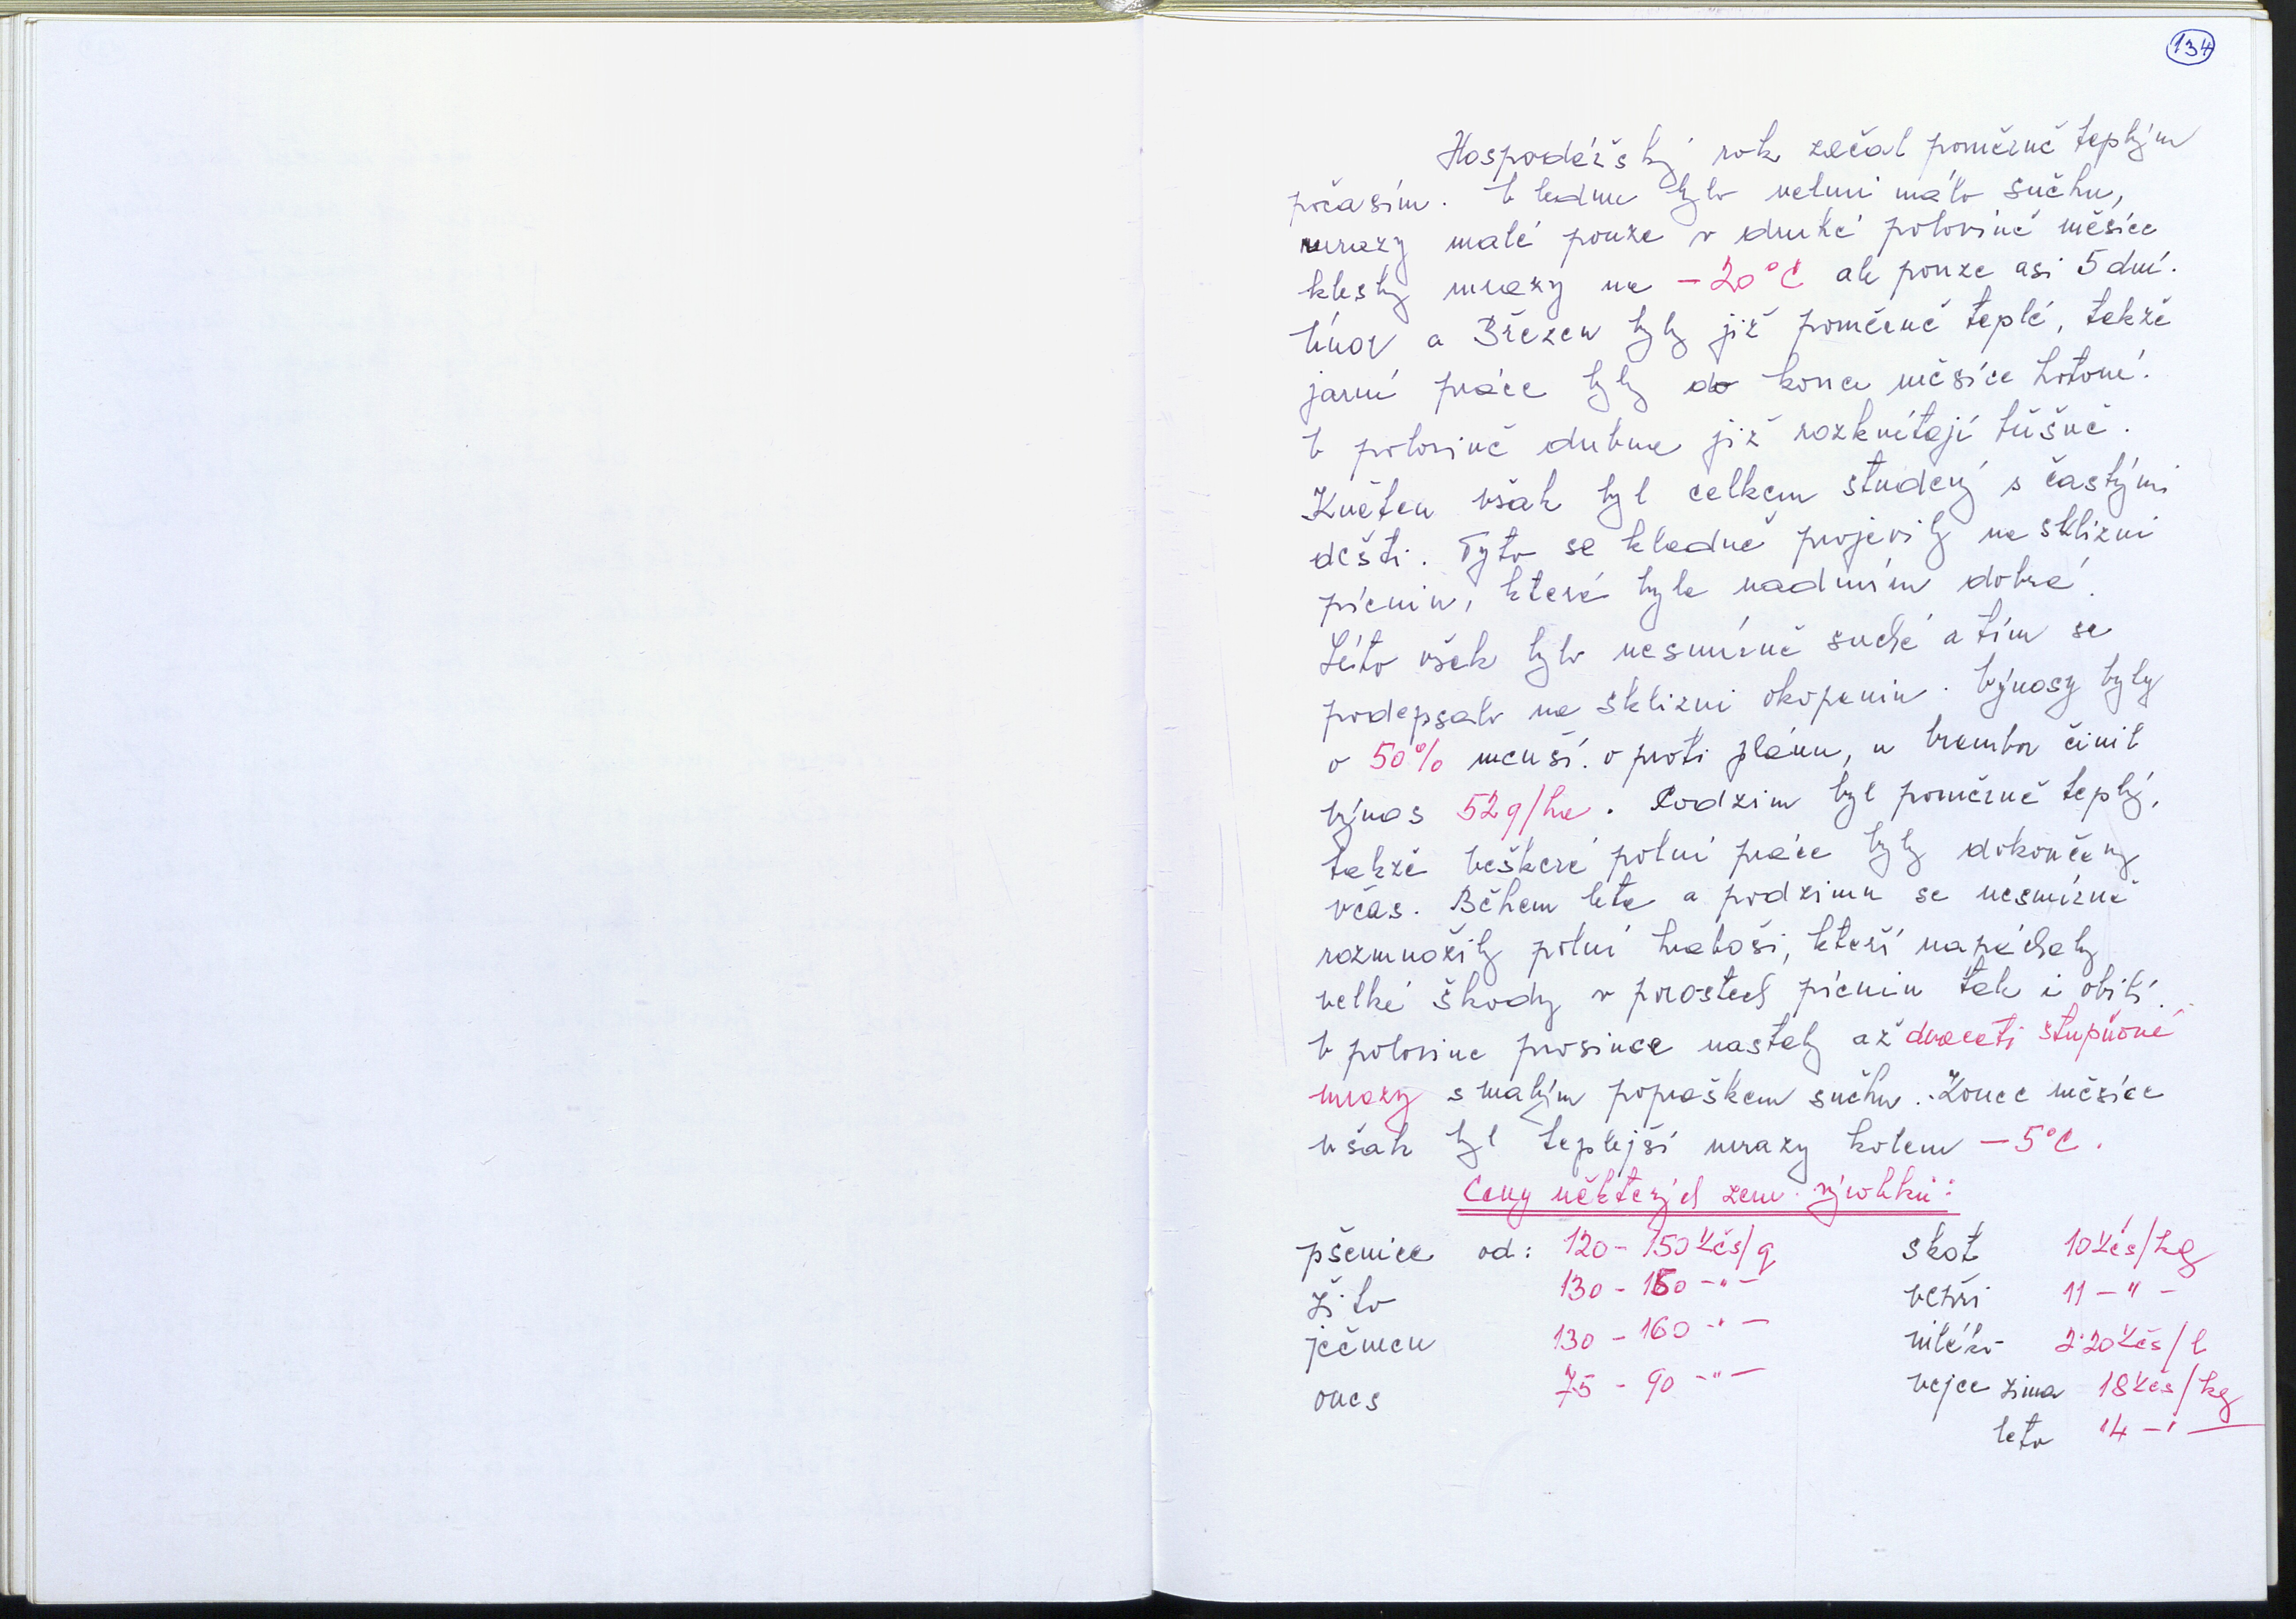 134
Hospodářský rok začal poměrně teplým
počasím. V lednu bylo velmi málo sněhu,
mrazy malé pouze v druhé polovině měsíce
klesly mrazy na -20°C ale pouze asi 5 dní.
Únor a Březen byly již poměrně teplé, takže
jarní práce byly do konce měsíce hotové.
V polovině dubna již rozkvítají třěšně.
Květen však byl celkem studený s častými
dešti. Tyto se kladně projevily na sklizni
pícnin, které byla nadmím dobrá.
Léto však bylo nesmírně suché a tím se
podepsalo na sklizni okopanin. Výnosy byly
o 50% menší. oproti plánu, u brambor činil
výnos 52q/ha. Podzim byl poměrně teplý,
takže veškeré polní práce byly dokončeny
včas. Během léta a podzimu se nesmírně
rozmnožily polní hraboši, kteří napáchaly
velké škody v porostech pícnin tak i obilí.
V polovine prosince nastaly až dvaceti stupňové
mrazy s malým popraškem sněhu. Konec měsíce
však byl teplejší mrazy kolem -5°C.
Ceny některých zem. výrobků:
pšenice od: 120 - 150 Kčs/q skot 10 Kčs/kg
žito 130 - 150 -"- vepři 11 -"-
ječmen 130 - 160 -"- mléko 2·20 Kčs/l
oves 75 - 90 -"- vejce zima 18 Kčs/kg
leto 14 -"-